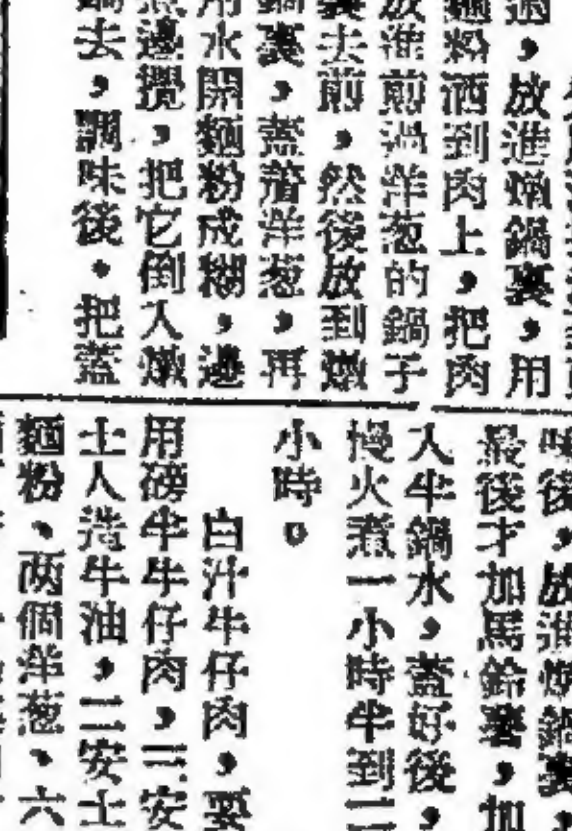 過，放進燉鍋裏，用
麵粉洒到肉上，把肉
放進煎過洋葱的鍋子
裏去煎，然後放到燉
鍋裏，蓋着洋葱，再
用水開麵粉成糊，邊
煮邊攪，把它倒入燉
鍋去，調味後。把蓋
味後，放進燉鍋裏，
最後才加馬鈴薯，加
入半鍋水，蓋好後，
慢火煮一小時半到二
小時。
白汁牛仔肉，要
用磅半牛仔肉，三安
士人造牛油，二安士
麵粉、两個洋葱、六